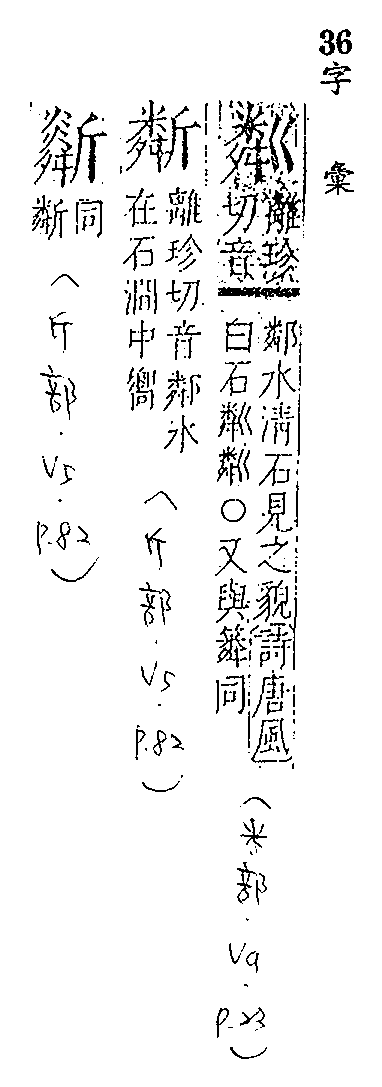 36字彙
粼離珍切音鄰水清石見之貌詩唐風白石粼粼○又與䉮同
(米部.V9.P.23)
㔂離珍切音鄰水在石澗中㗽
(斤部.V5.P.82)
同㔂
(斤部.V5.P.82)